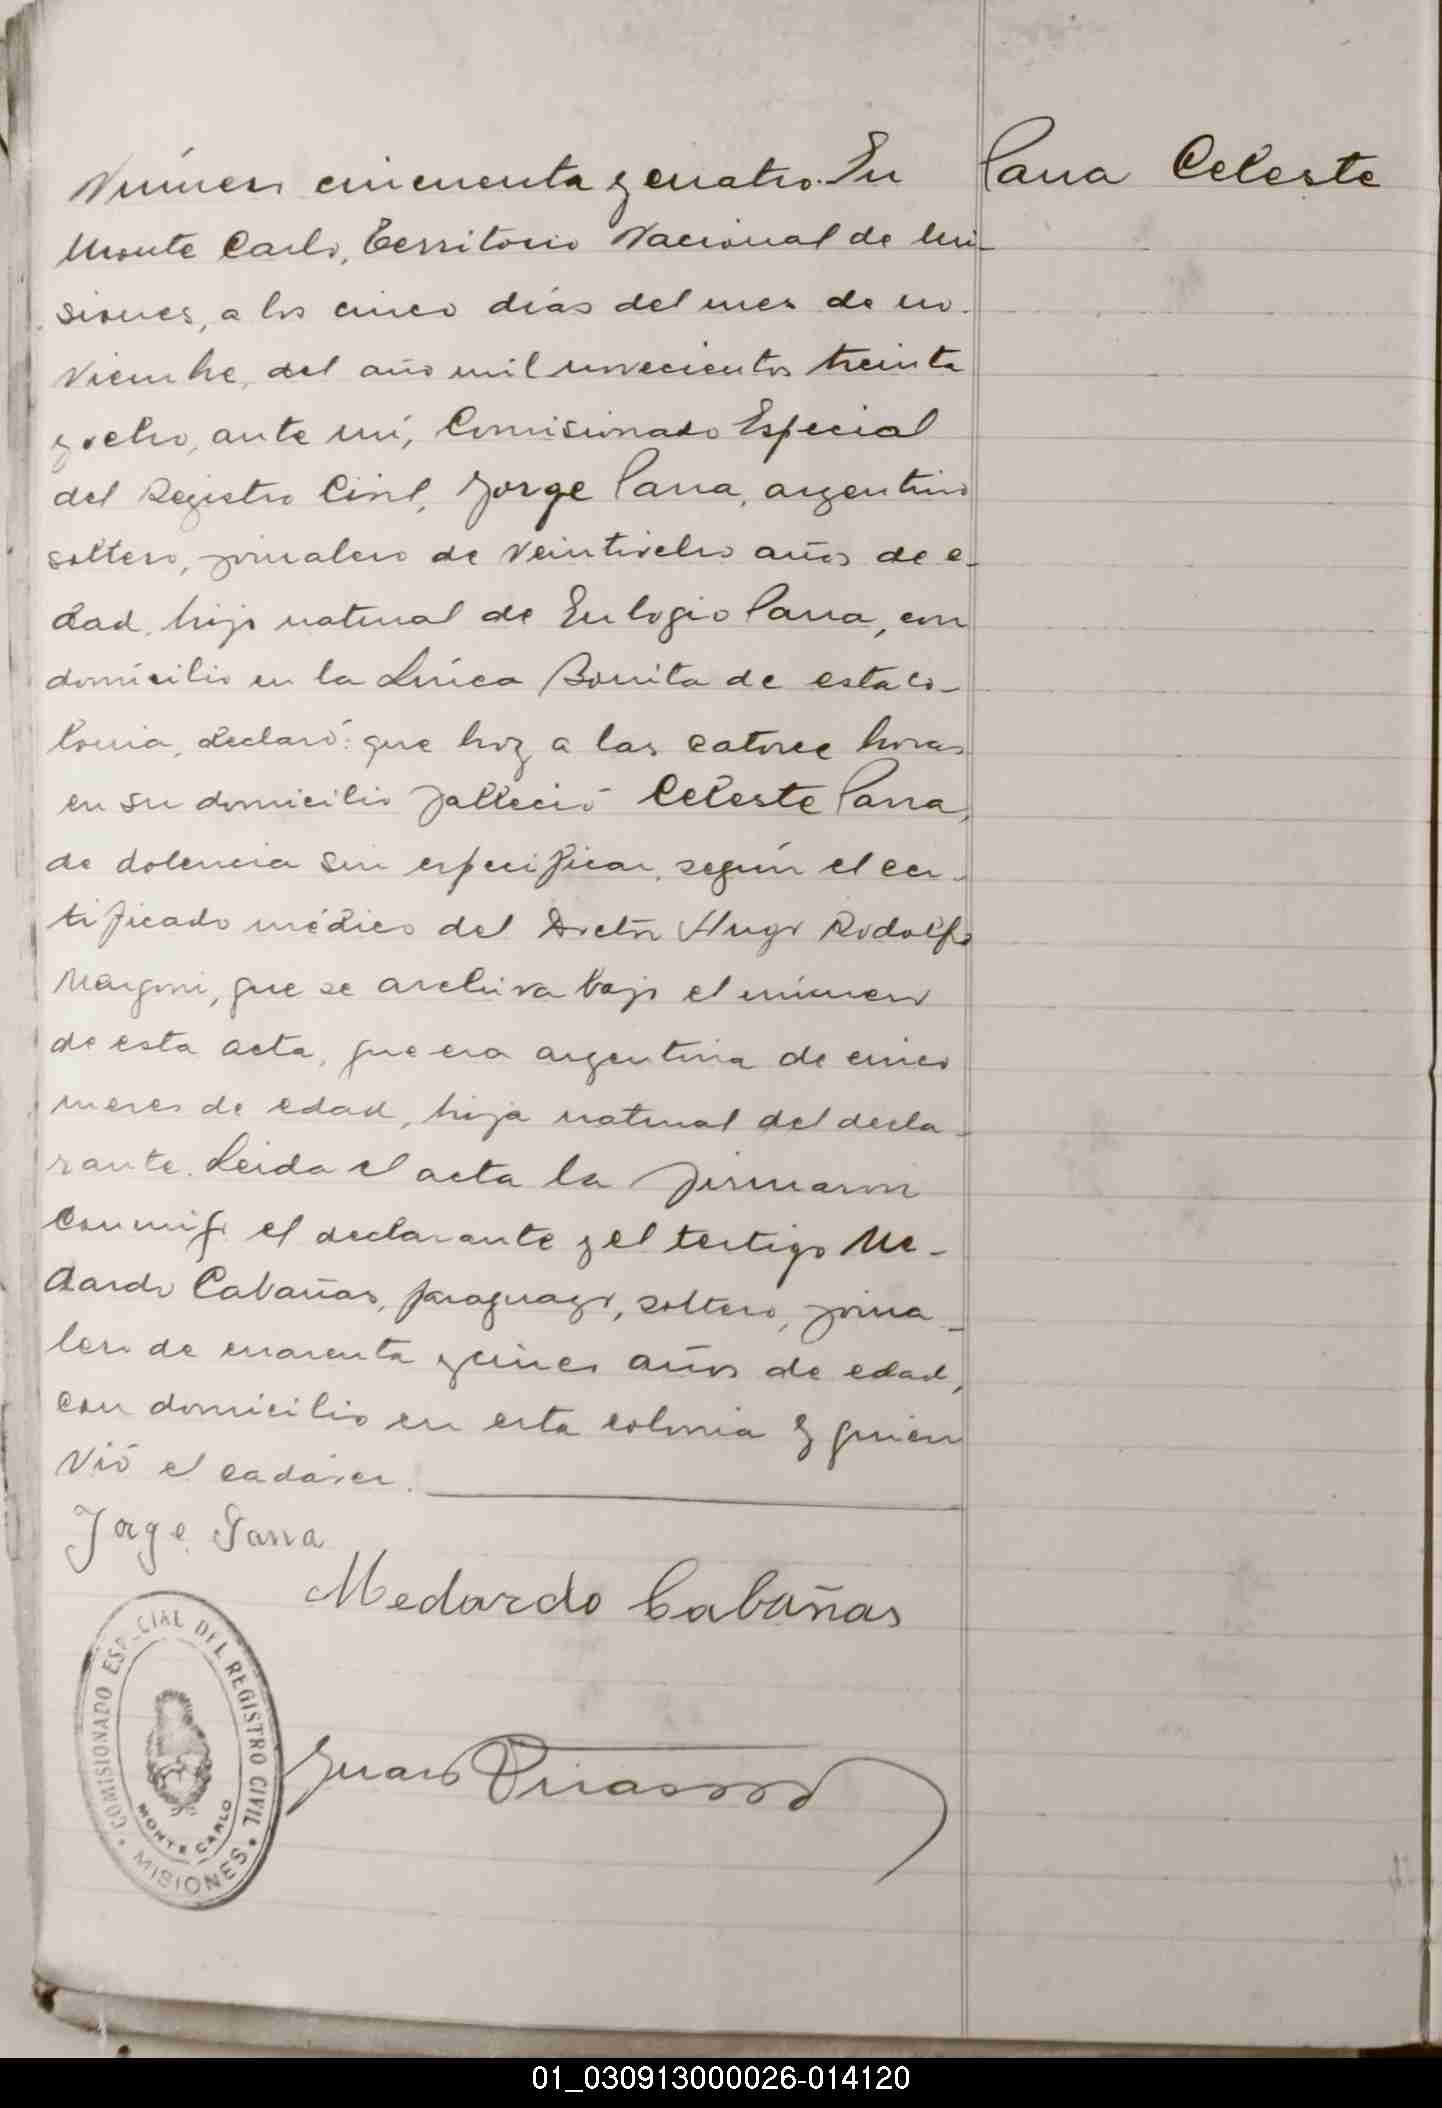 Número cincuenta y cuatro. En
Parra Celeste
Monte Carlo, Territorio Nacional de Mi-
siones, a los cinco días del mes de no-
viembre, del año mil novecientos treinta
y ocho, ante mí, Comisionado Especial
del Registro Civil, Jorge Parra, argentino
soltero, jornalero de veintiocho años de e-
dad, hijo natural de Eulogio Parra, con
domicilio en la Línea Bonita de esta co-
lonia, declaró: que hoy a las catorce horas
en su domicilio falleció Celeste Parra,
de dolencia sin especificar, según el cer-
tificado médico del Doctor Hugo Rodolfo
que se archiva bajo el número
de esta acta, que era argentina de cinco
meses de edad, hija natural del decla-
rante. Leida el acta la firmaron
conmigo el declarante y el testigo Me-
dardo Cabañas, paraguayo, soltero, jorna-
lero de cuarenta y cinco años de edad,
con domicilio en esta colonia y quien
vió el cadáver.
Jorge Parra
Medardo Cabañas
COMISIONADO ESPECIAL DEL REGISTRO CIVIL
MONTE CARLO
MISIONES
Juan
01_030913000026-014120